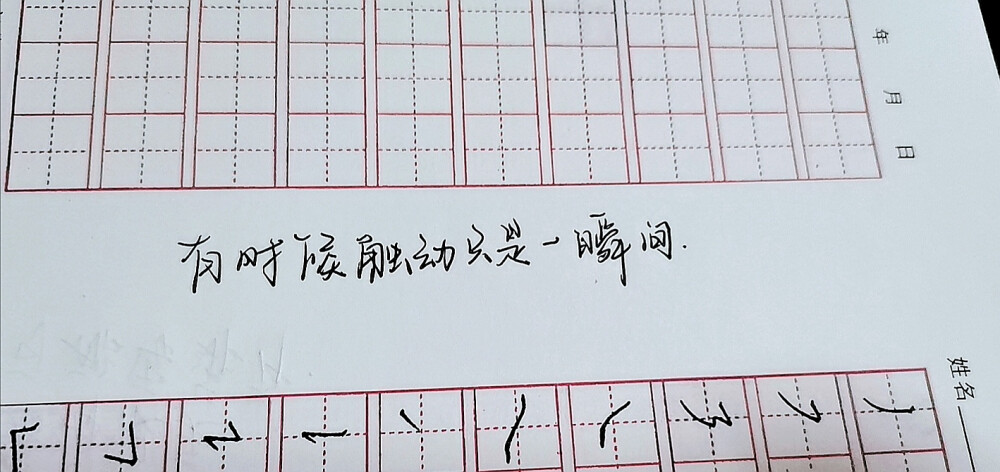 年 月 日
有时候触动只是一瞬间.
姓名